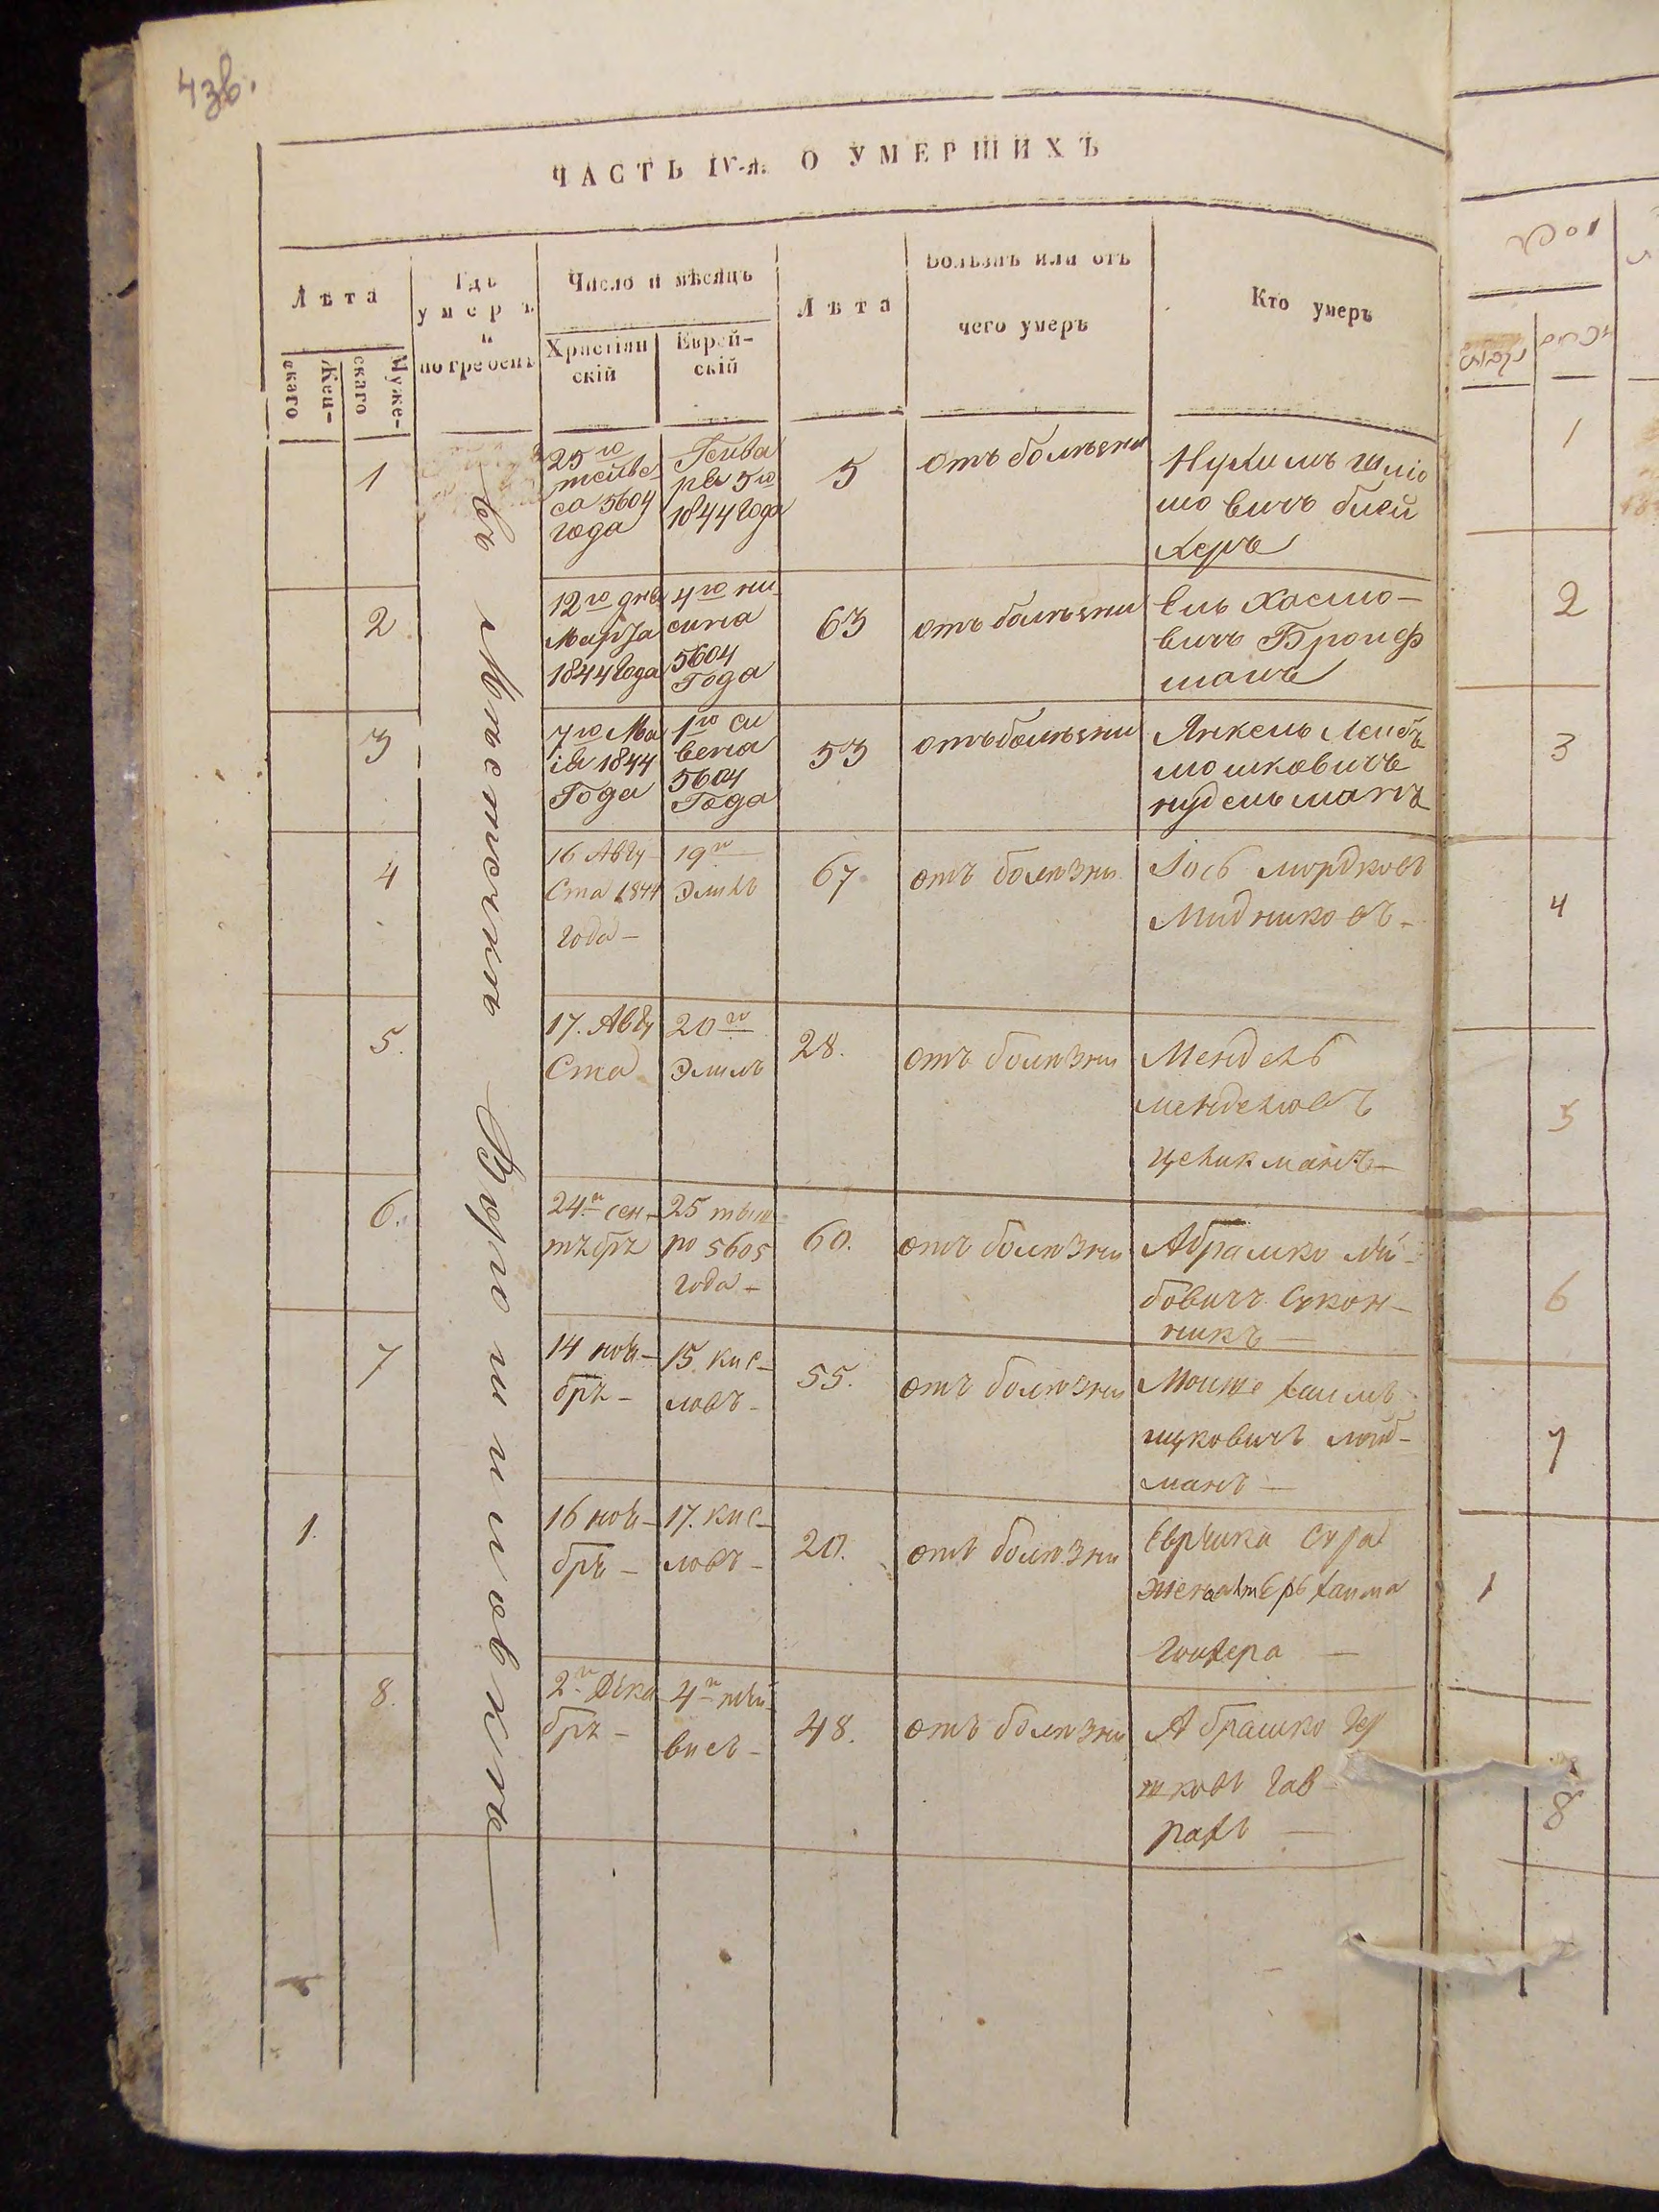 4 зв.
ЧАСТЬ IV-я. О УМЕРШИХЪ
Лѣта
Женскаго
Мужескаго
Гдѣ
умеръ
и
погребенъ
Число и мѣсяцъ
Христіян
скій
Еврей-
скій
Лѣта
Болѣзнь или отъ
чего умеръ
Кто умеръ
въ Мѣстечкѣ
1
25го
тейве
са 5604
года
Генва
ря 5го
1844 Года
5
отъ болѣзни
Нухимъ Шліо
мовичъ
херъ
2
12го дня
Марта
1844 Года
4го ни
сина
5604
Года
63
отъ болѣзни
вичъ Бронф
манъ
3
7го Ма
ія 1844
Года
1го си
вена
5604
Года
53
отъ болѣзни
Янкель Лейбъ
мошковичъ
нудельманъ
4
16 Авгу
ста 1844
года –
19го
Элилъ
67
отъ болѣзни
Іось мордковъ
Мидниковъ –
5.
17. Авгу
ста
20го
Элилъ
28.
отъ болѣзни
Мендель
менделювъ
целикманъ –
6.
24го сен-
тѣбрѣ
25 тыш
ре 5605
года –
60.
отъ болѣзни
Абрашко Лей-
бовичъ Сукон-
никъ –
7
14 ноя-
брѣ –
15 кис-
ловъ –
55.
отъ болѣзни
Мошке хаимъ
ицковичъ
манъ –
1.
16 ноя-
брѣ –
17. кис-
ловъ –
20.
отъ болѣзни
Еврѣика Сура
хаима
8.
2го Дека
брѣ –
4го тей-
висъ –
48.
отъ болѣзни
Абрашко Гер
шковъ Гав-
рахъ –
1
2
3
4
5
6
7
1
8